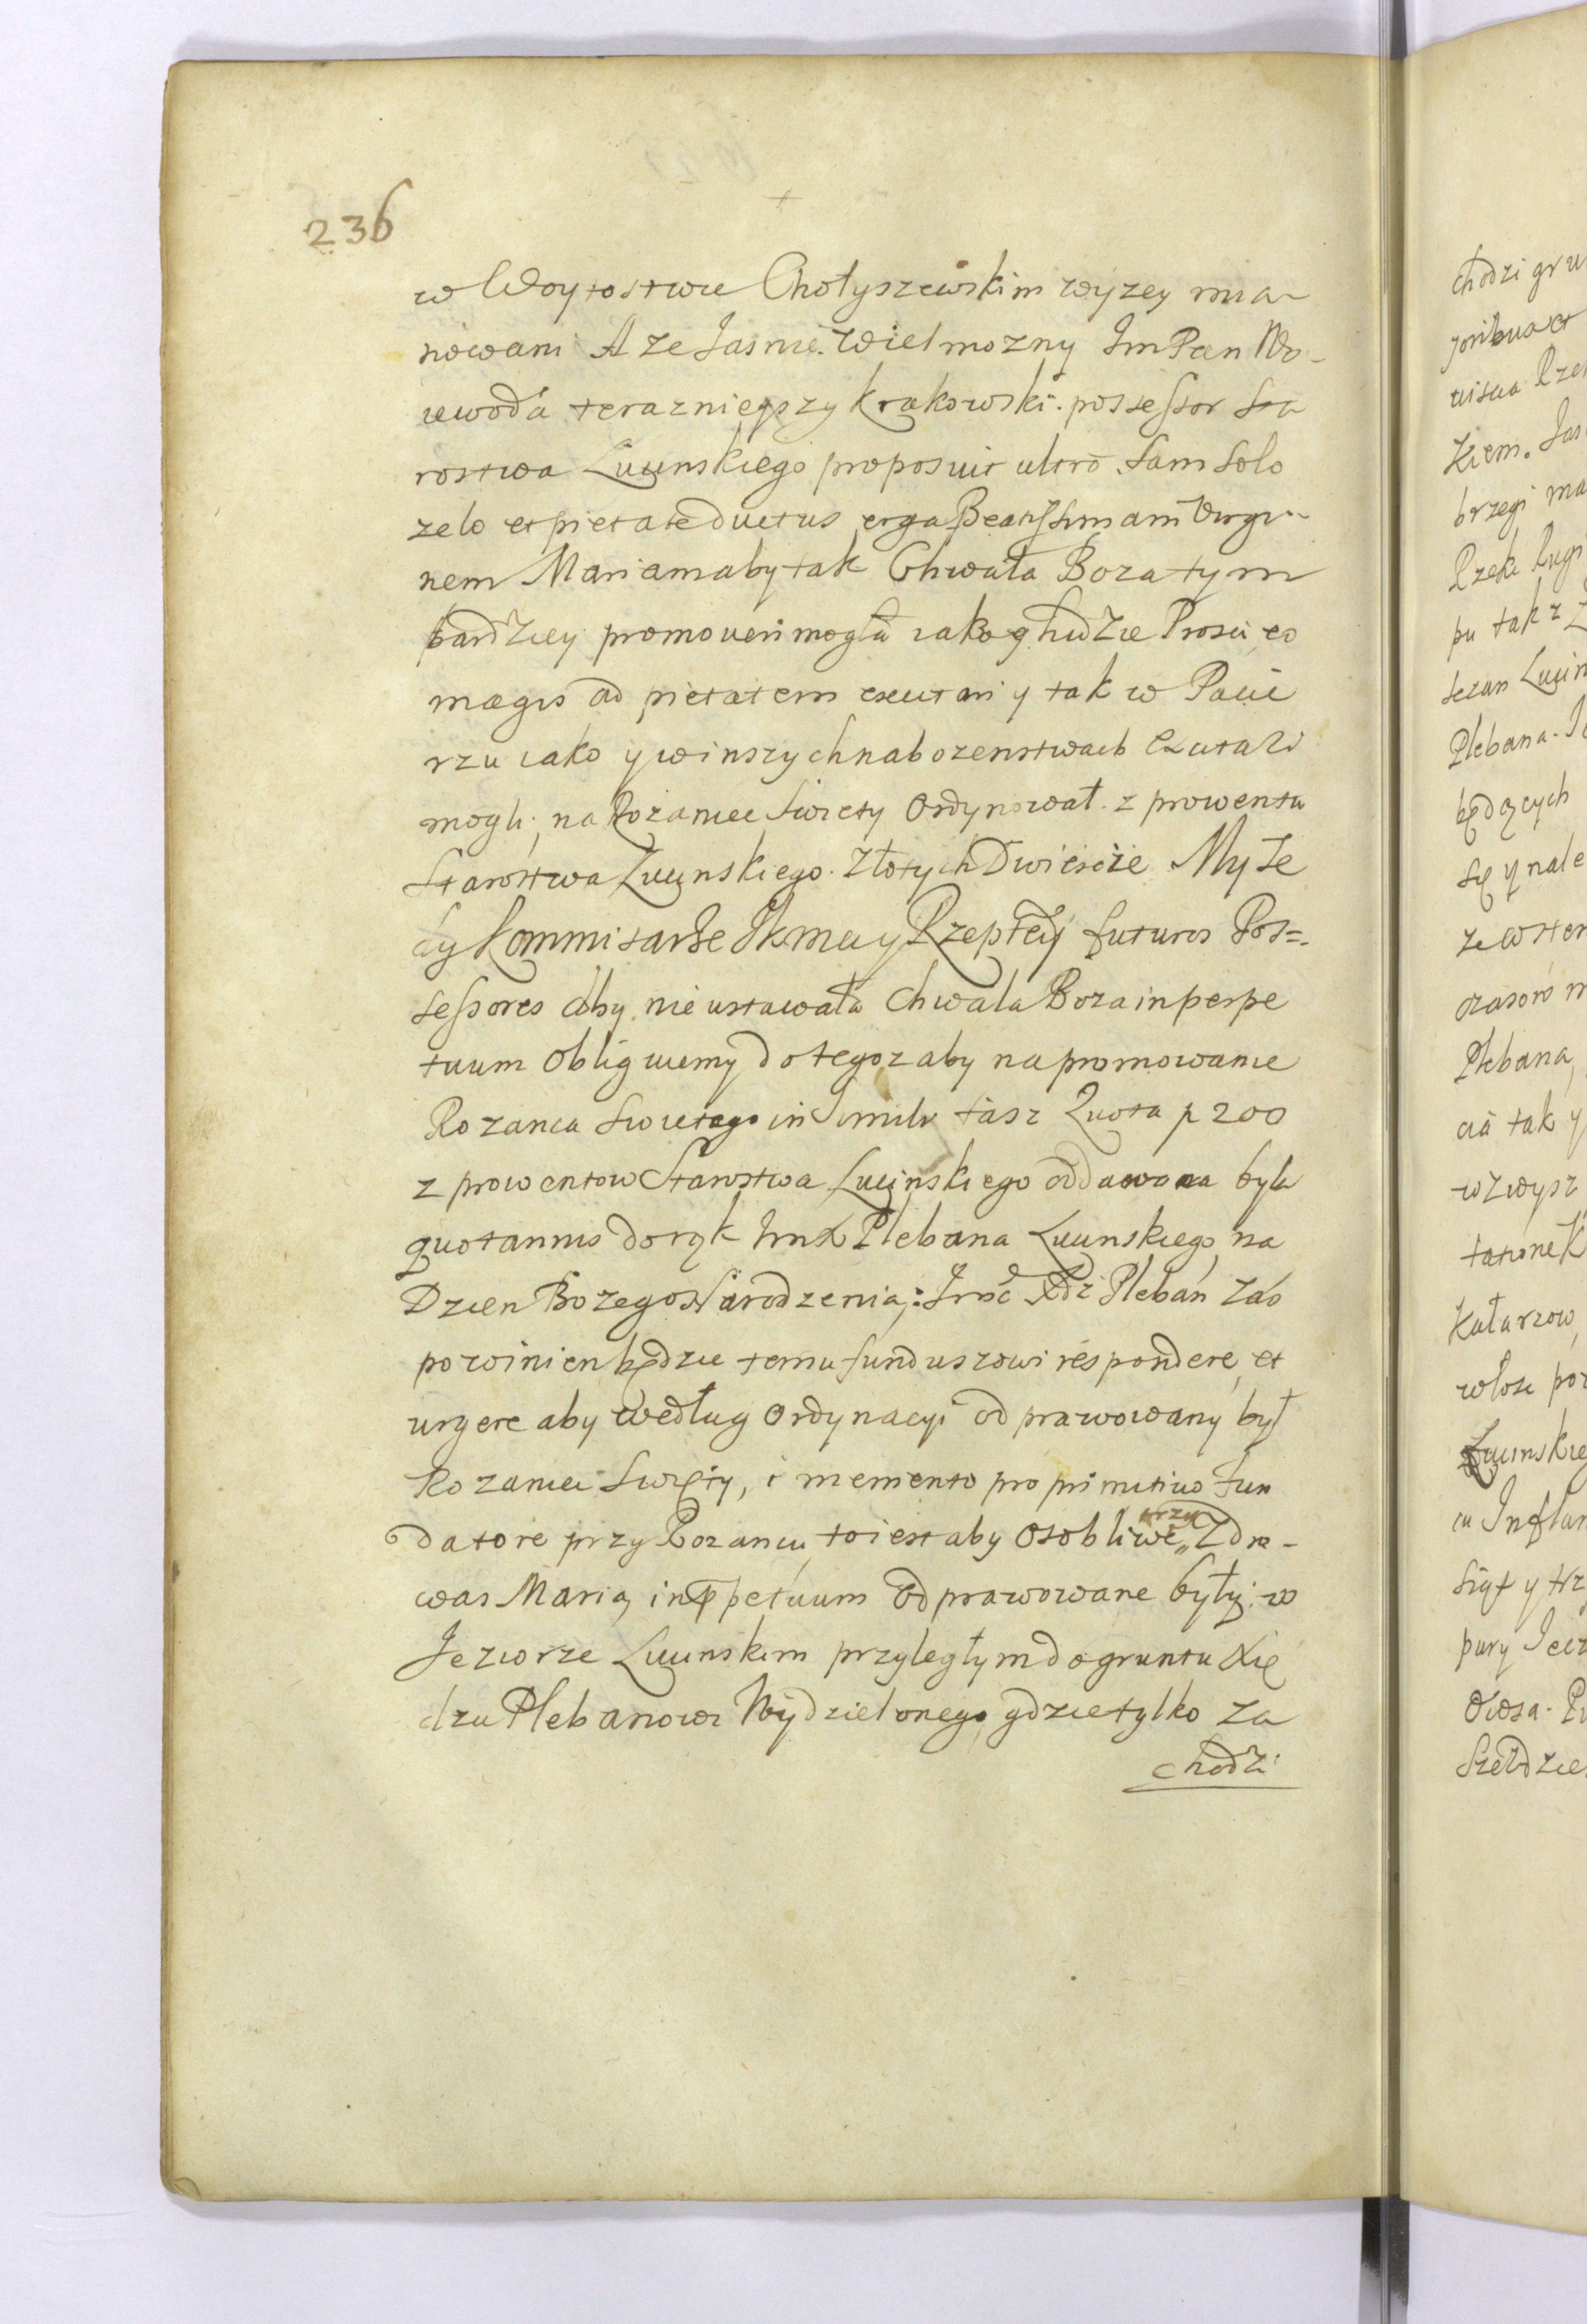 236
w Woytostwie Chołyszewskim wyzey mia-
nowani A ze Jasnie Wielmozny Jm Pan Wo-
iewoda teraznieyszy Krakowski. possessor Sta
rostwa Lucinskiego proposuit ultro Sam Solo
zelo et pietate ductus erga Beatissimam Virgi-
nem Mariam aby tak Chwała Boza tym
bardziey promoveri mogła iako y ludzie Prosci eo
magis ad pietatem excitari y tak w Pacie
rzu iako y w inszych nabozenstwach
mogli, na Rozaniec Swiety Ordynował z prowentu
Starostwa Lucinskiego. Złotych Dwiescie My Te
dy Kommisarze JKmci y Rzeptey futuros Pos=
sessores aby nie ustawała Chwała Boza in perpe
tuum Obliguiemy do tego z aby na promowanie
Rozanca Swietego in Simili tasz Quota p 200
z prowentow Starostwa Lucinskiego oddawana była
quotannis do rąk ImX Plebana Lucinskiego, na
Dzien Bozego Narodzenia, : Jmć Xdz Pleban zas
powinien będzie temu funduszowi respondere, et
urgere aby według Ordynacyi odprawowany był
Rozaniec Swięty, i memento pro primitivo Fun
datore przy Rozancu, to iest aby Osobliwe trzy Zdro-
was Maria, in perpetuum Odprawowane były: w
Jeziorze Lucinskim przyległym do gruntu Xię
dzu Plebanowi Wydzielonego, gdzie tylko za
chodzi
chodzi gru
Kiem. Jas
brzegi ma
Rzeki
pu tak z
Plebana.
będących
się y nale
czasow
Plebana,
cia tak y
w zwysz
Lucinskie
ca Inflan